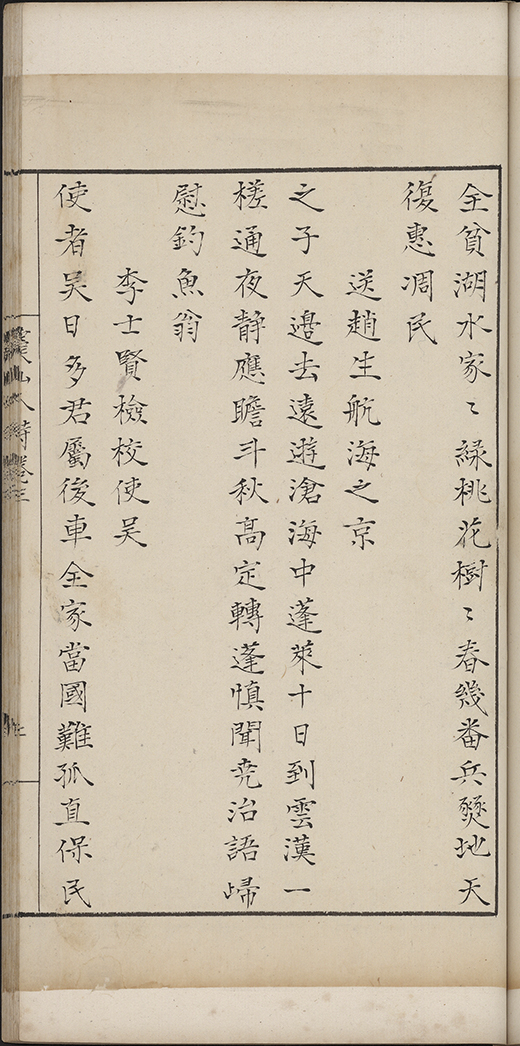 全貧湖水家〻緑桃花樹〻春幾番兵燹地天
復惠凋民
送趙生航海之京
之子天邊去遠遊滄海中蓬萊十日到雲漢一
槎通夜静應瞻斗秋髙定轉蓬慎聞堯治語歸
慰釣魚翁
李士賢檢校使吴
使者吴日多君屬後車全家當國難孤直保民